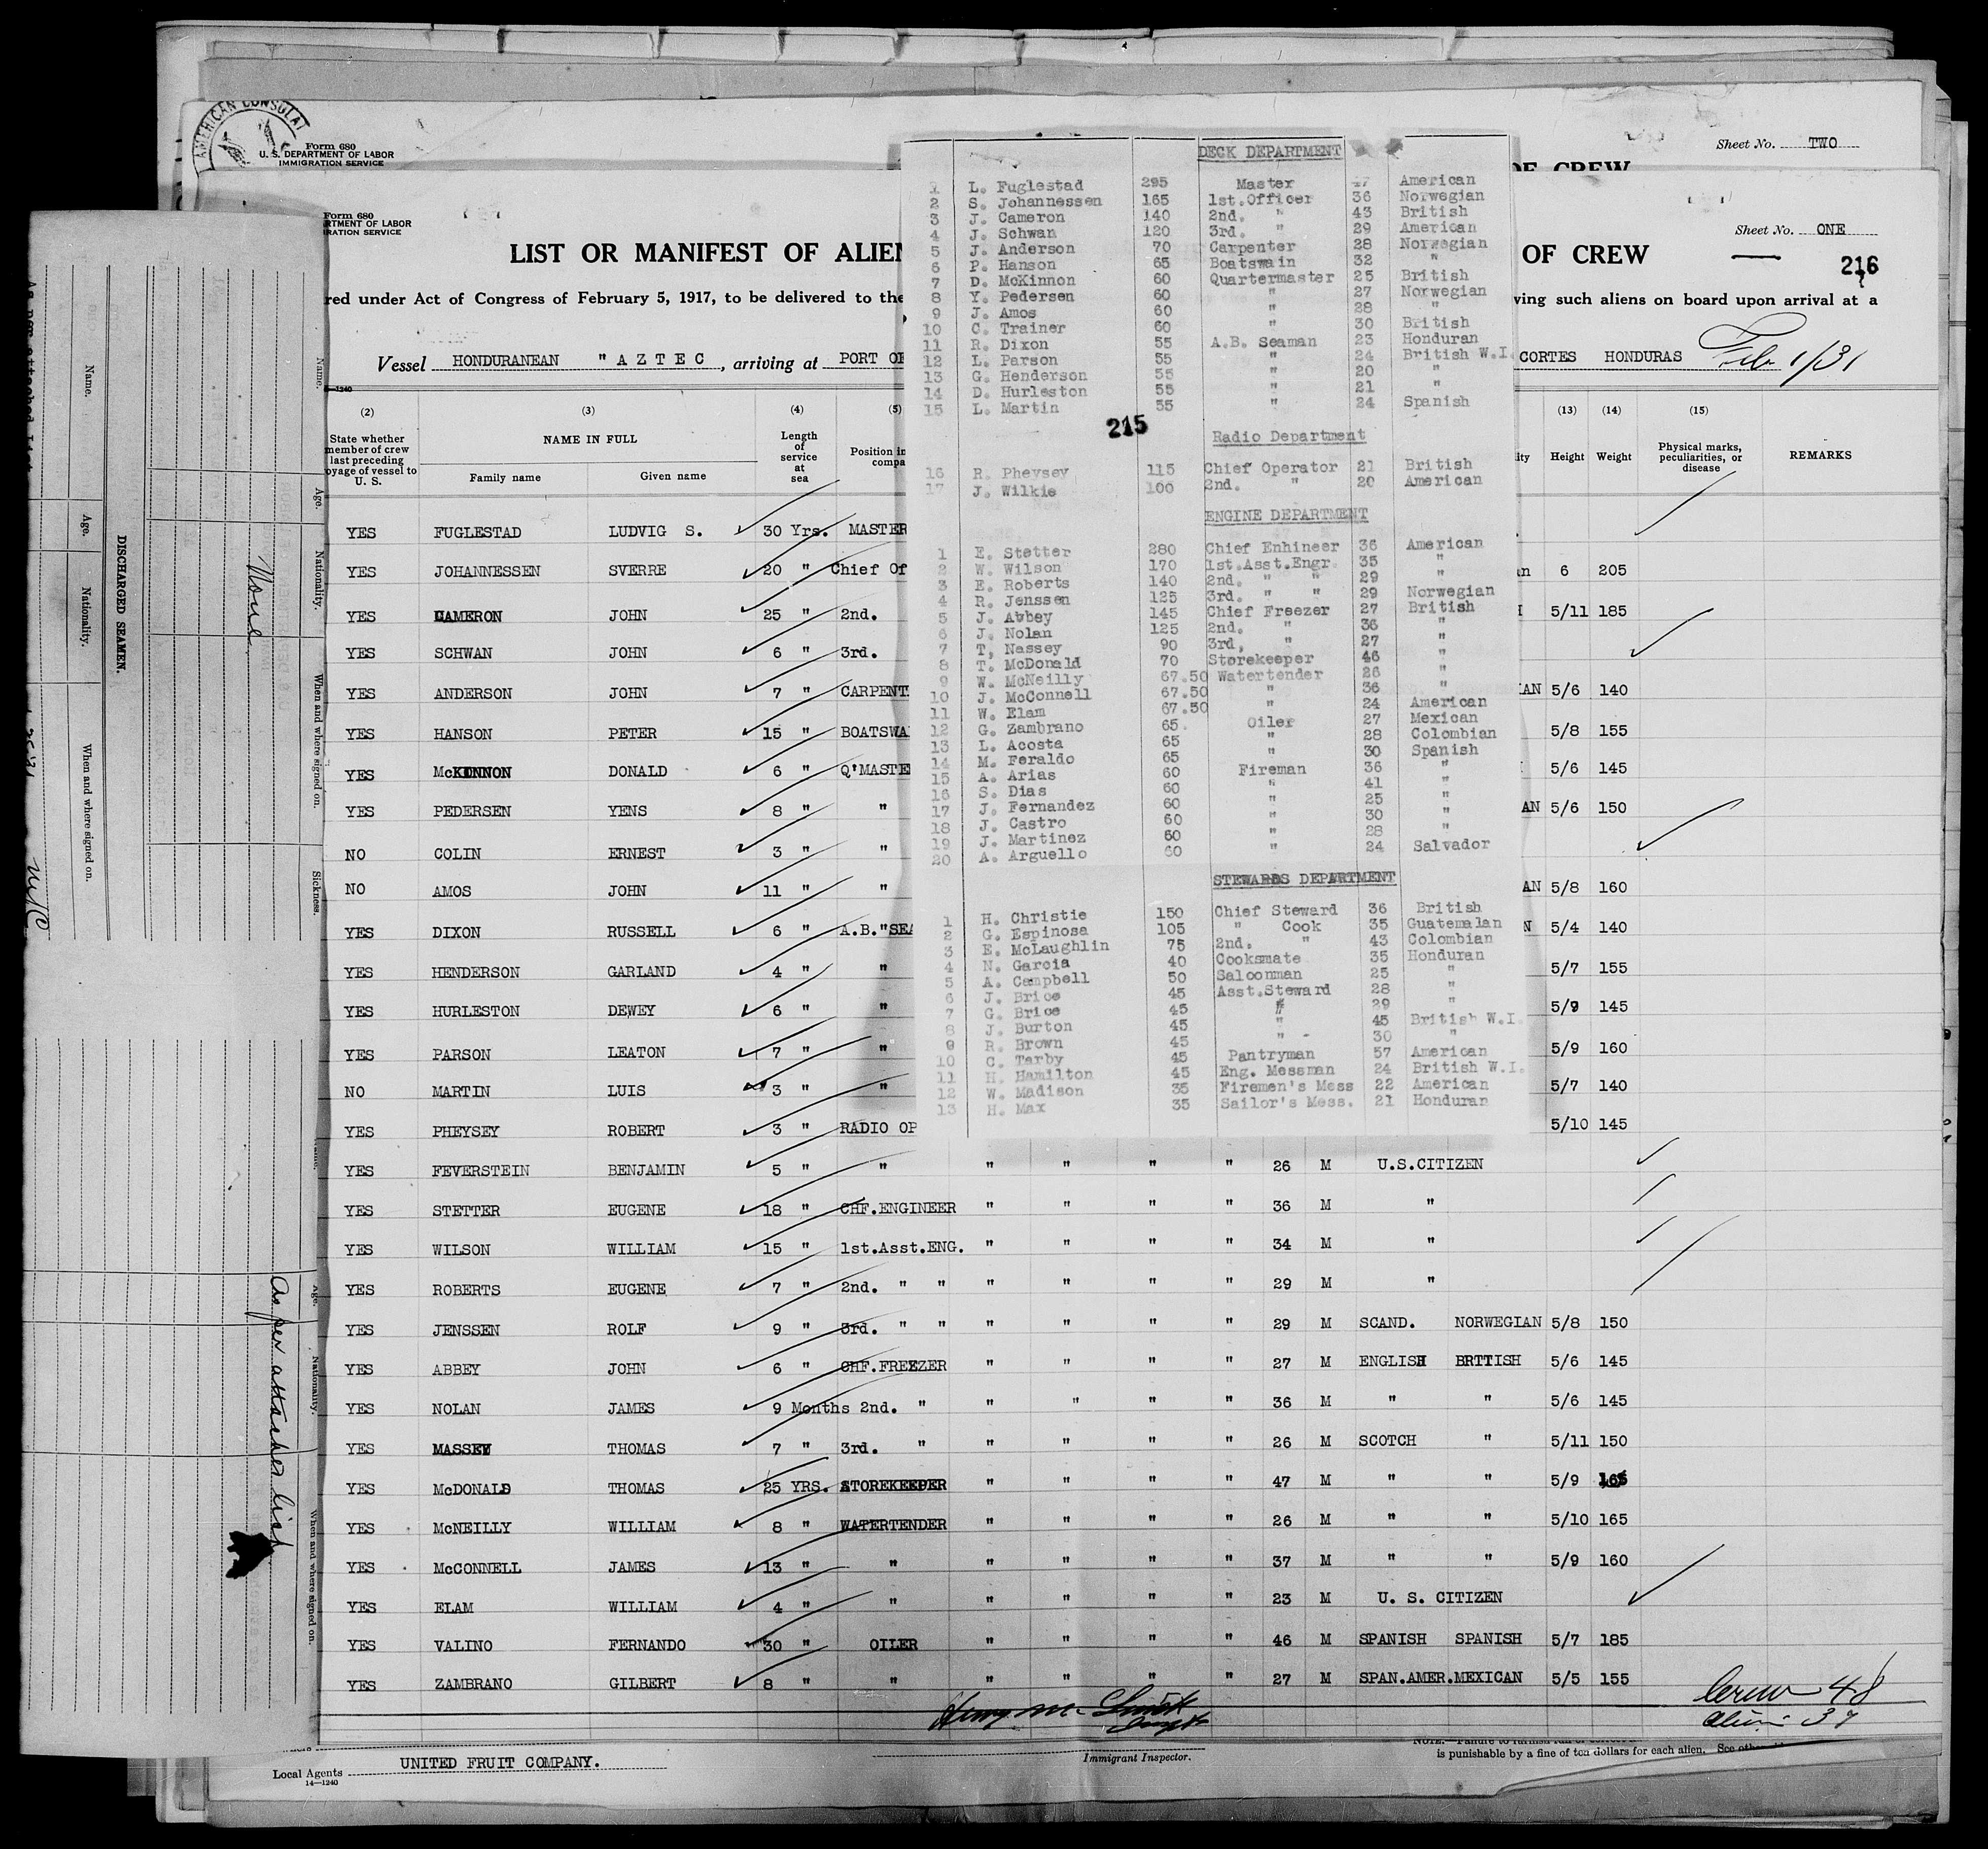 AMERICAN CONSULAT
Form 680
U. S. DEPARTMENT OF LABOR
IMMIGRATION SERVICE
Sheet No. TWO
OF CREW
Form 680
RTMENT OF LABOR
RATION SERVICE
Sheet No. ONE
LIST OR MANIFEST OF ALIEN
OF CREW
216
red under Act of Congress of February 5, 1917, to be delivered to the
ving such aliens on board upon arrival at a
Vessel HONDURANEAN "AZTEC , arriving at PORT OF
CORTES HONDURAS Feb 1/31
(2) (3) (4) (5) (13) (14) (15)
State whether member of crew last preceding oyage of vessel to U. S.
NAME IN FULL
Family name Given name
Length of service at sea
Position in compa
ity Height Weight
Physical marks, peculiarities, or disease
REMARKS
YES FUGLESTAD LUDVIG S. 30 Yrs. MASTER
YES JOHANNESSEN SVERRE 20 " Chief Of an 6 205
YES CAMERON JOHN 25 " 2nd. 5/11 185
YES SCHWAN JOHN 6 " 3rd.
YES ANDERSON JOHN 7 " CARPENT IAN 5/6 140
YES HANSON PETER 15 " BOATSWA 5/8 155
YES McKINNON DONALD 6 " Q'MASTE 5/6 145
YES PEDERSEN YENS 8 " " AN 5/6 150
NO COLIN ERNEST 3 " "
NO AMOS JOHN 11 " " AN 5/8 160
YES DIXON RUSSELL 6 " A.B."SEA N 5/4 140
YES HENDERSON GARLAND 4 " " 5/7 155
YES HURLESTON DEWEY 6 " " 5/9 145
YES PARSON LEATON 7 " " 5/9 160
NO MARTIN LUIS 3 " " 5/7 140
YES PHEYSEY ROBERT 3 " RADIO OP 5/10 145
YES FEVERSTEIN BENJAMIN 5 " " " " " " 26 M U.S.CITIZEN
YES STETTER EUGENE 18 " CHF.ENGINEER " " " " 36 M "
YES WILSON WILLIAM 15 " 1st.Asst.ENG. " " " " 34 M "
YES ROBERTS EUGENE 7 " 2nd. " " " " " " 29 M "
YES JENSSEN ROLF 9 " 3rd. " " " " " " 29 M SCAND. NORWEGIAN 5/8 150
YES ABBEY JOHN 6 " CHF.FREEZER " " " " 27 M ENGLISH BRTTISH 5/6 145
YES NOLAN JAMES 9 Months 2nd. " " " " " 36 M " " 5/6 145
YES MASSEY THOMAS 7 " 3rd. " " " " " 26 M SCOTCH " 5/11 150
YES McDONALD THOMAS 25 YRS. STOREKEEPER " " " " 47 M " " 5/9 165
YES McNEILLY WILLIAM 8 " WATERTENDER " " " " 26 M " " 5/10 165
YES McCONNELL JAMES 13 " " " " " " 37 M " " 5/9 160
YES ELAM WILLIAM 4 " " " " " " 23 M U. S. CITIZEN
YES VALINO FERNANDO 30 " OILER " " " " 46 M SPANISH SPANISH 5/7 185
YES ZAMBRANO GILBERT 8 " " " " " " 27 M SPAN.AMER.MEXICAN 5/5 155
Crew 48
Henry M.
Immigrant Inspector.
Local Agents UNITED FRUIT COMPANY.
14—1240
is punishable by a fine of ten dollars for each alien. See
DECK DEPARTMENT
1 L. Fuglestad 295 Master 47 American
2 S. Johannessen 165 1st.Officer 36 Norwegian
3 J. Cameron 140 2nd. " 43 British
4 J. Schwan 120 3rd. " 29 American
5 J. Anderson 70 Carpenter 28 Norwegian
6 P. Hanson 65 Boatswain 32 "
7 D. McKinnon 60 Quartermaster 25 British
8 Y. Pedersen 60 " 27 Norwegian
9 J. Amos 60 " 28 "
10 C. Trainer 60 " 30 British
11 R. Dixon 55 A.B. Seaman 23 Honduran
12 L. Parson 55 " 24 British W.I.
13 G. Henderson 55 " 20 "
14 D. Hurleston 55 " 21 "
15 L. Martin 55 " 24 Spanish
215
Radio Department
16 R. Pheysey 115 Chief Operator 21 British
17 J. Wilkie 100 2nd. " 20 American
ENGINE DEPARTMENT
1 E. Stetter 280 Chief Enhineer 36 American
2 W. Wilson 170 1st.Asst.Engr. 35 "
3 E. Roberts 140 2nd. " " 29 "
4 R. Jenssen 125 3rd. " " 29 Norwegian
5 J. Abbey 145 Chief Freezer 27 British
6 J. Nolan 125 2nd. " 36 "
7 T, Nassey 90 3rd, " 27 "
8 T. McDonald 70 Storekeeper 46 "
9 W. McNeilly 67.50 Watertender 26 "
10 J. McConnell 67.50 " 36 "
11 W. Elam 67.50 " 24 American
12 G. Zambrano 65. Oiler 27 Mexican
13 L. Acosta 65 " 28 Colombian
14 M. Feraldo 65 " 30 Spanish
15 A. Arias 60 Fireman 36 "
16 S. Dias 60 " 41 "
17 J. Fernandez 60 " 25 "
18 J. Castro 60 " 30 "
19 J. Martinez 60 " 28 "
20 A. Arguello 60 " 24 Salvador
STEWARDS DEPARTMENT
1 H. Christie 150 Chief Steward 36 British
2 G. Espinosa 105 " Cook 35 Guatemalan
3 E. McLaughlin 75 2nd. " 43 Colombian
4 N. Garcia 40 Cooksmate 35 Honduran
5 A. Campbell 50 Saloonman 25 "
6 J. Brice 45 Asst.Steward 28 "
7 G. Brice 45 " 29 "
8 J. Burton 45 " 45 British W.I.
9 R. Brown 45 " 30 "
10 C. Tarby 45 Pantryman 57 American
11 H. Hamilton 45 Eng. Messman 24 British W.I.
12 W. Madison 35 Firemen's Mess 22 American
13 H. Max 35 Sailor's Mess. 21 Honduran
DISCHARGED SEAMEN.
Name. Age. Nationality. When and where signed on.
Name. Age. Nationality. When and where signed on. Sickness.
None
Age. Nationality. When and where signed on.
As per attached list